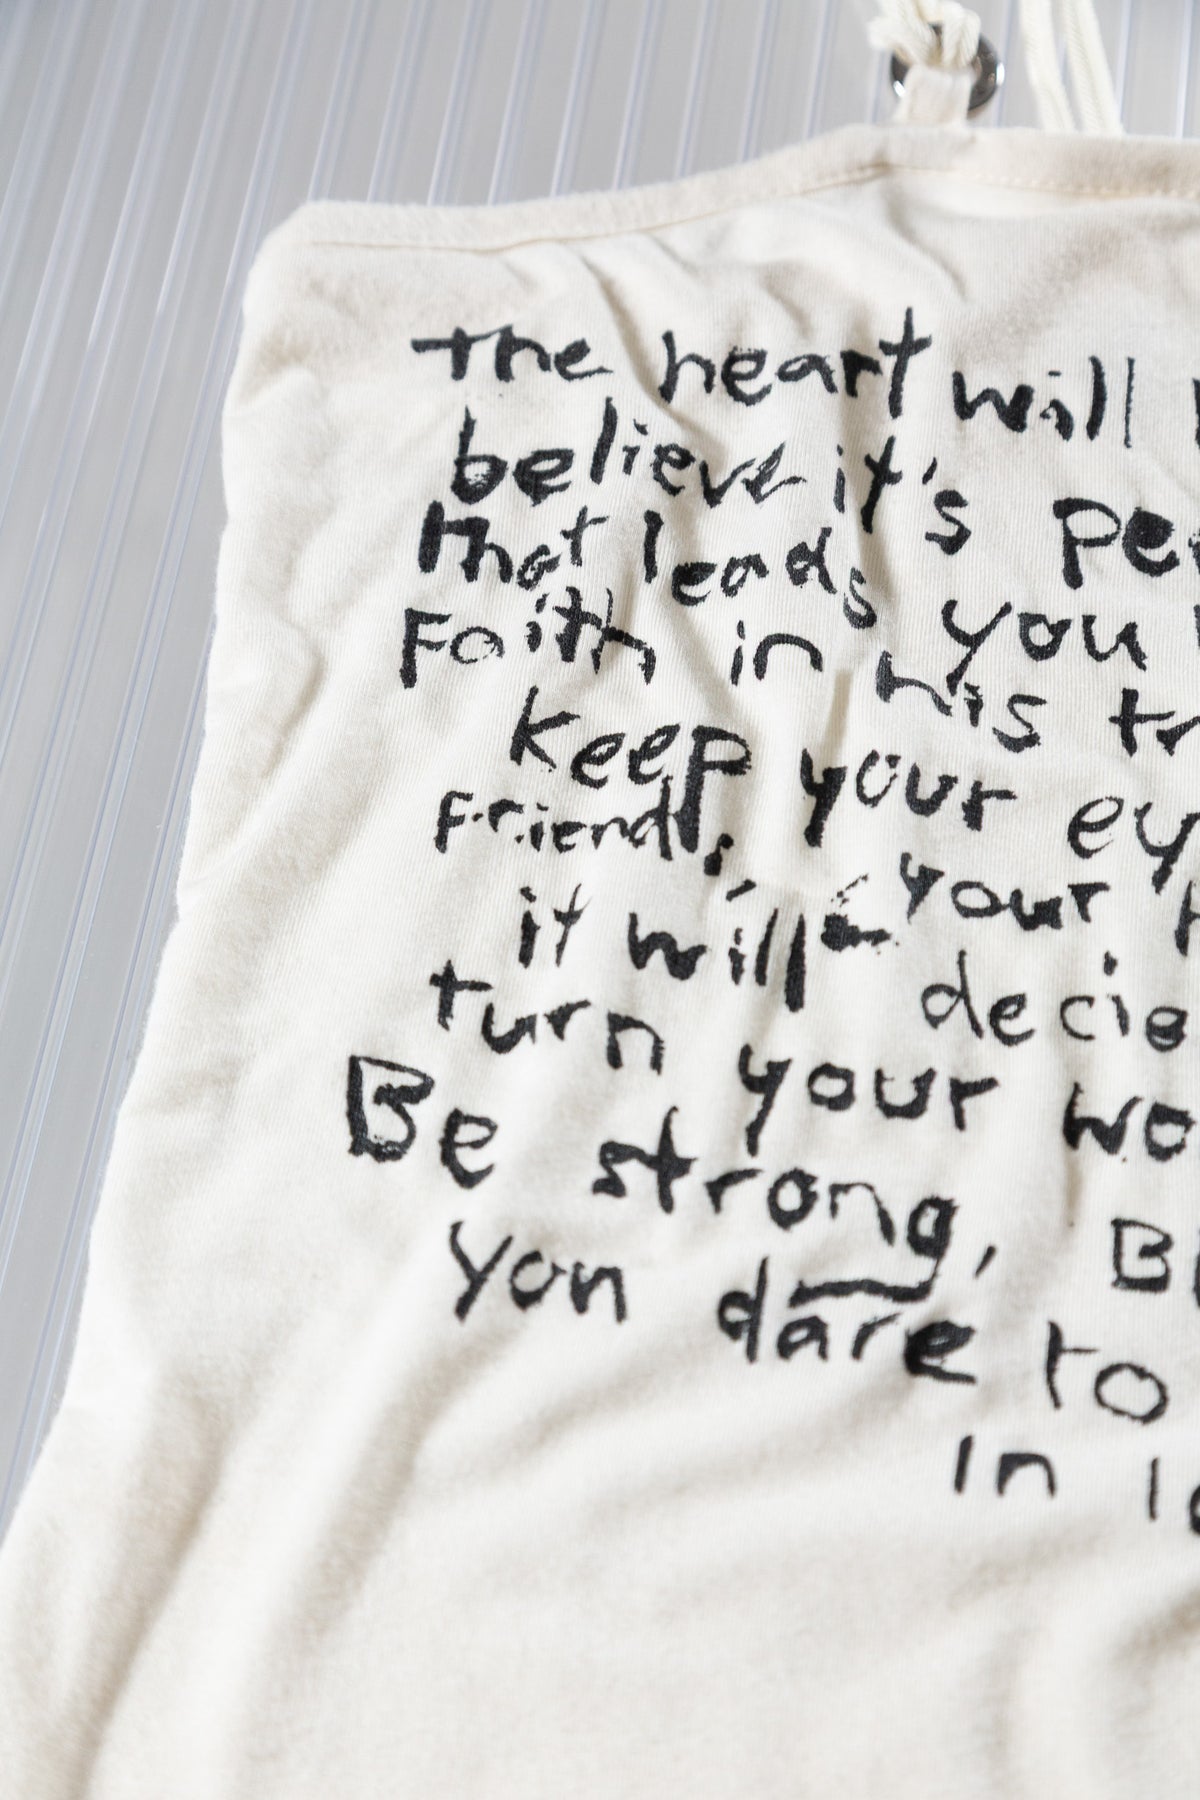 The heart will
believe it's
that leads you
Faith in his
keep your
Friends, your
it will decie
turn your
Be strong,
you dare to
in